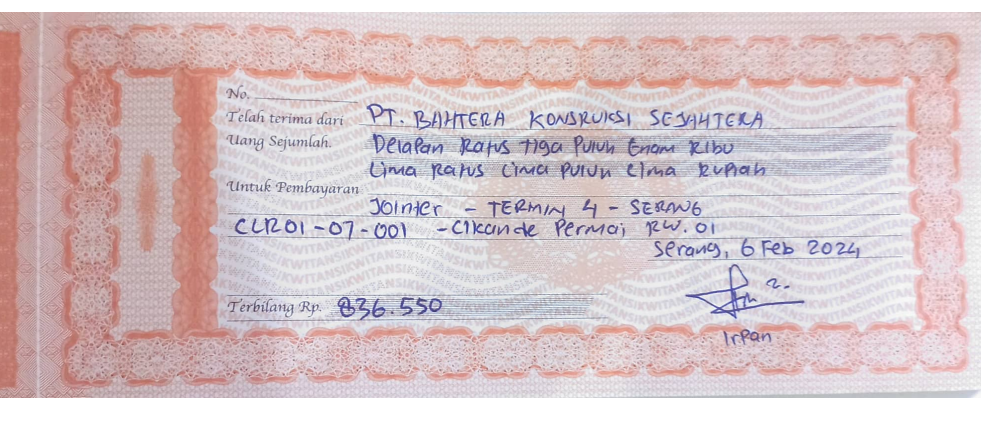 No.
Telah terima dari PT. BAHTERA KONSRUKSI SEJAHTERA
Uang Sejumlah. Delapan Ratus Tiga Puluh Enam Ribu
Lima Ratus Lima Puluh Lima Rupiah
Untuk Pembayaran
Jointer - TERMIN 4 - SERANG
CLR01-07-001 - Cikande Permai RW. 01
Serang, 6 Feb 2024
Terbilang Rp. 836.550
Irpan